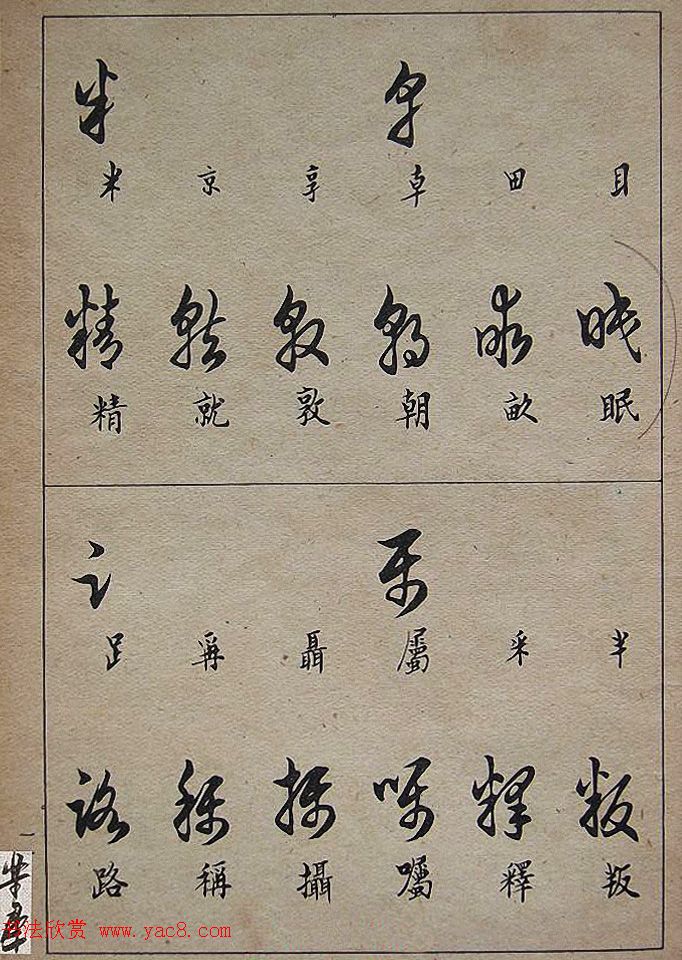 目 田 卓 享 京 米
眠 畝 朝 敦 就 精
眠 畝 朝 敦 就 精
半 釆 屬 聶 爯 足
叛 釋 囑 攝 稱 路
叛 釋 囑 攝 稱 路
一
书法欣赏 www.yac8.com